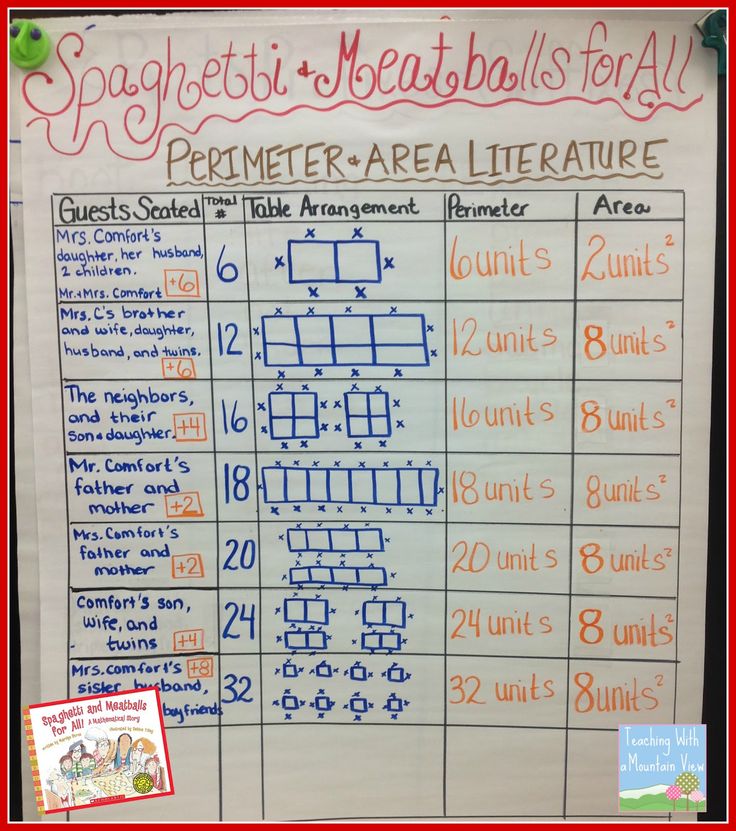 Spaghetti & Meatballs for All
PERIMETER & AREA LITERATURE
Guests Seated
Total #
Table Arrangement
Perimeter
Area
Mrs. Comfort's
daughter, her husband,
2 children.
Mr. & Mrs. Comfort +6
6
6 units
2 units²
Mrs. C's brother
and wife, daughter,
husband, and twins.
+6
12
12 units
8 units²
The neighbors,
and their
son & daughter. +4
16
16 units
8 units²
Mr. Comfort's
father and
mother +2
18
18 units
8 units²
Mrs. Comfort's
father and
mother +2
20
20 units
8 units²
Comfort's son,
wife, and
twins +4
24
24 units
8 units²
Mrs. comfort's +8
sister, husband,
boyfriends
32
32 units
8 units²
Spaghetti and Meatballs
for All! A Mathematical Story
written by Marilyn Burns
illustrated by Debbie Tilley
SCHOLASTIC
Teaching With
a Mountain View